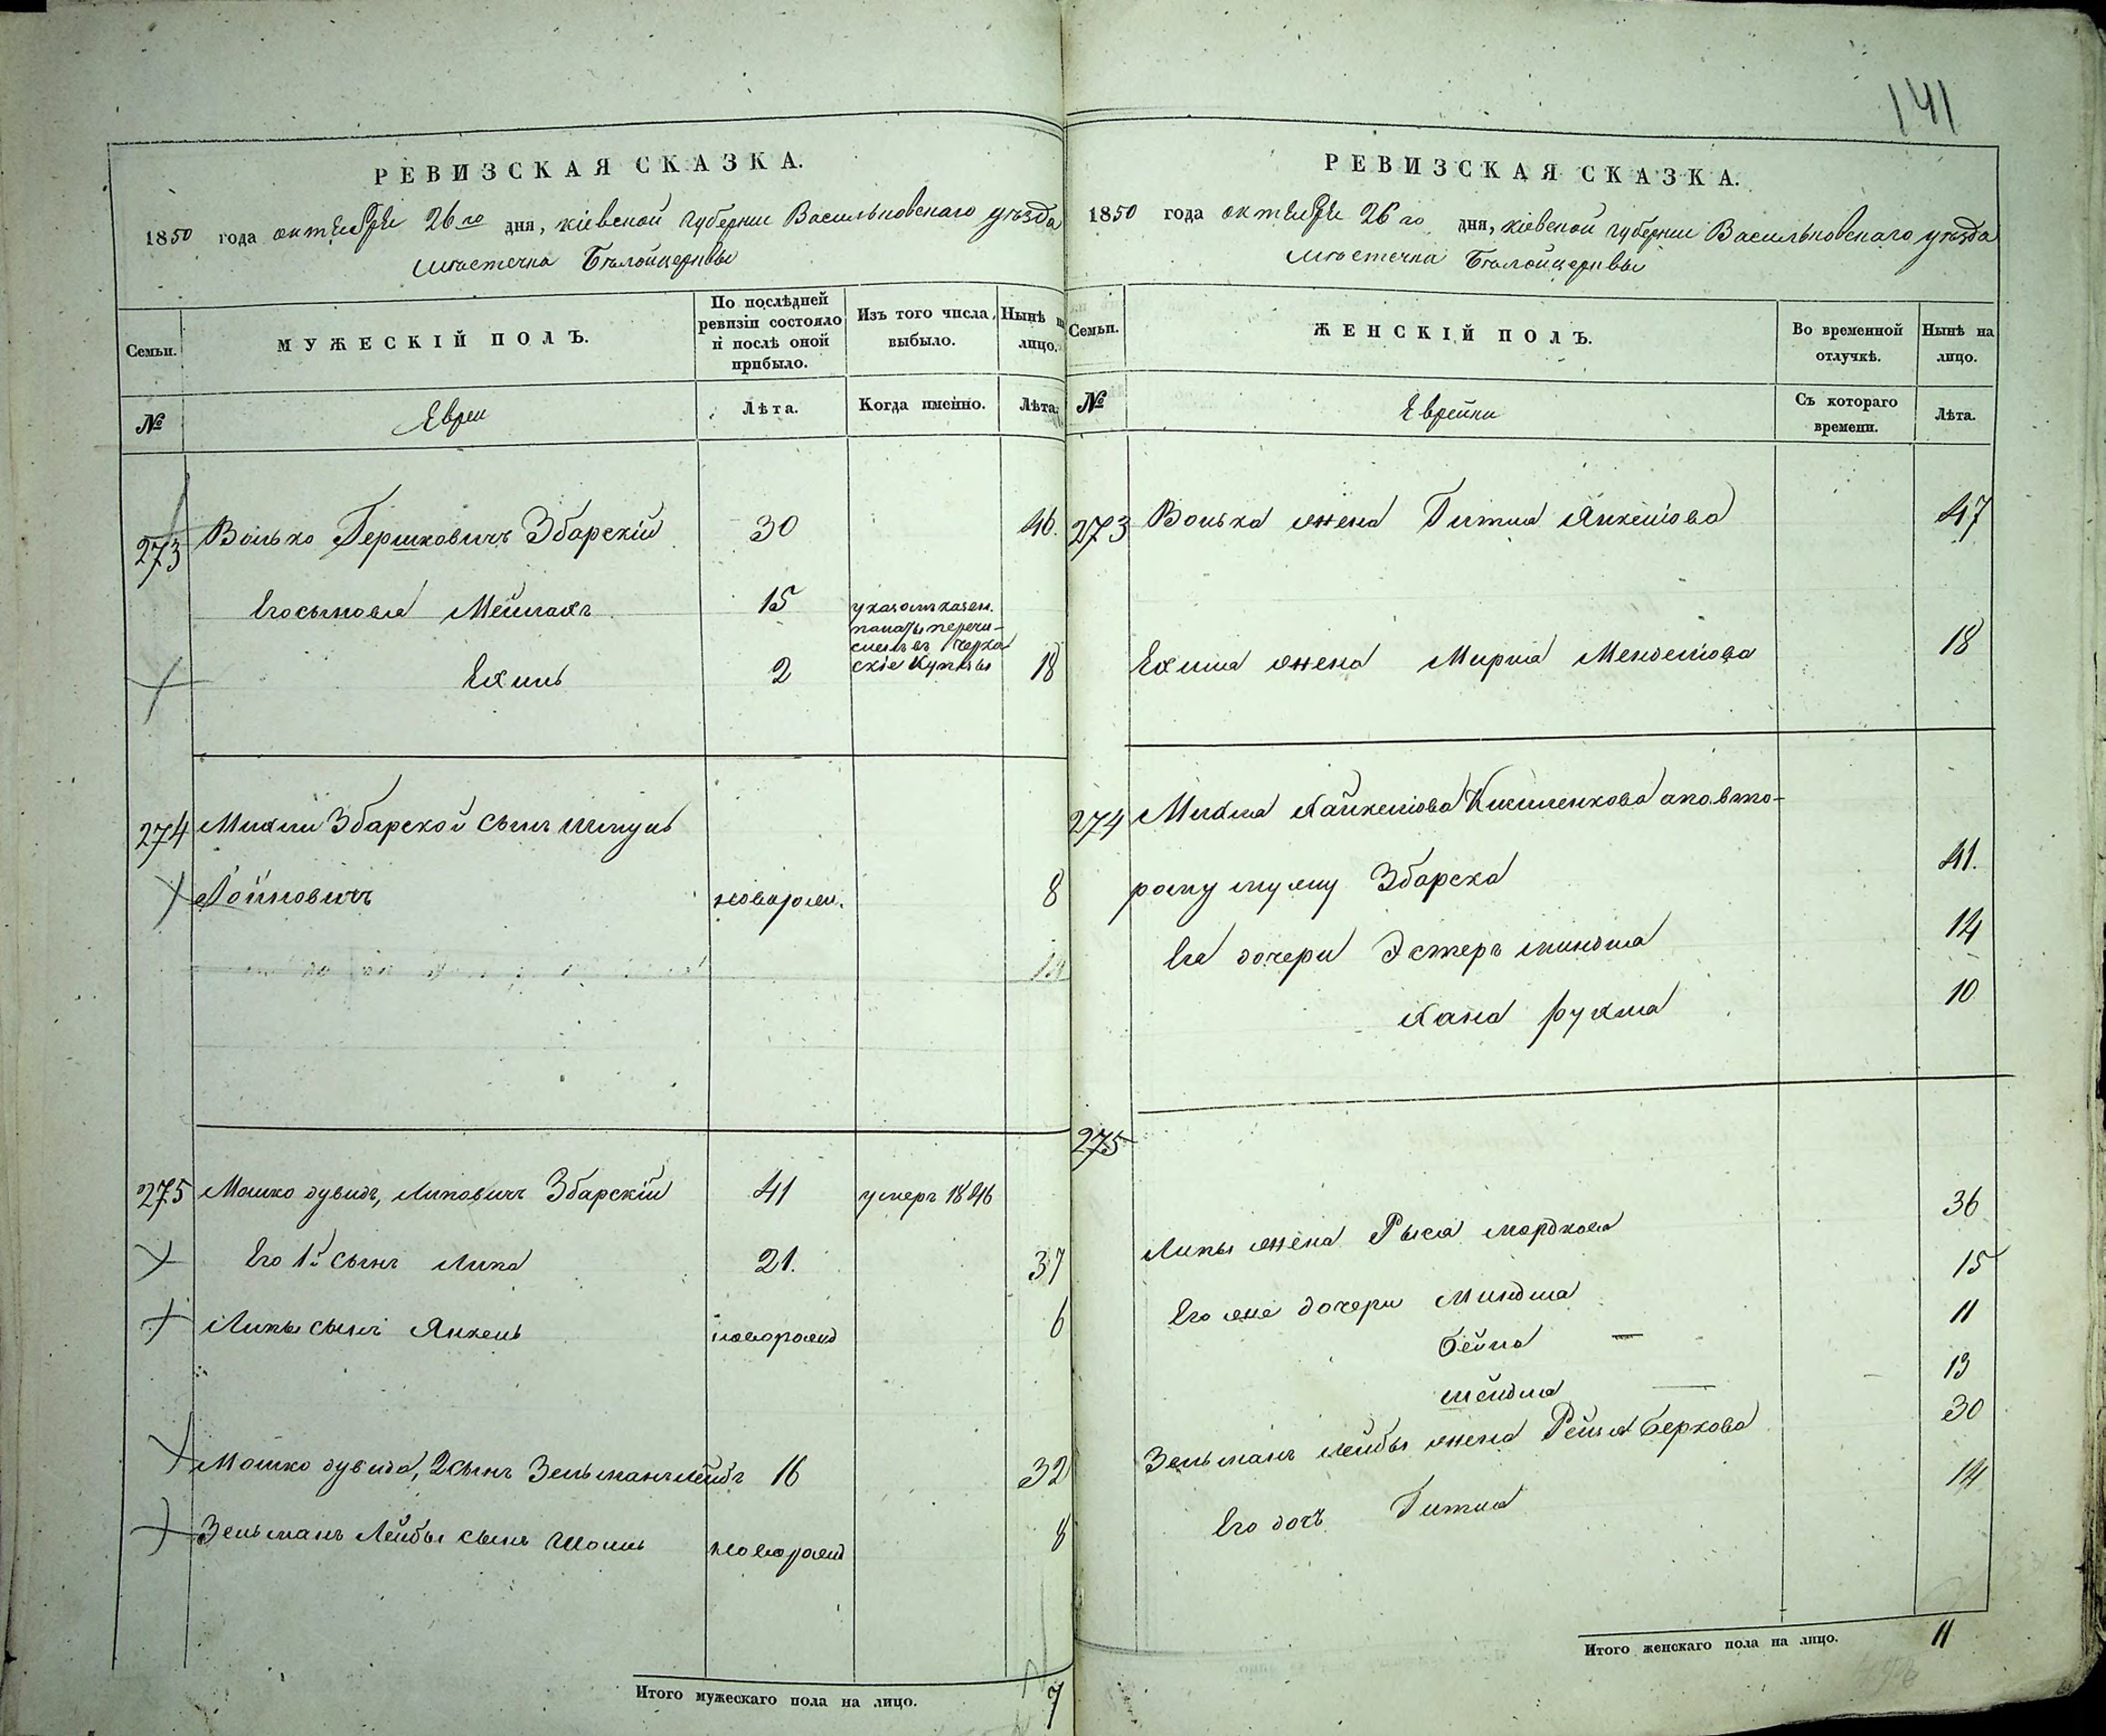 141
РЕВИЗСКАЯ СКАЗКА.
1850 года октября 26го дня, Кіевской губерніи Васильковскаго уѣзда
мѣстечка Бѣлойцеркви
Семьи.
МУЖЕСКІЙ ПОЛЪ.
По послѣдней ревизіи состояло и послѣ оной прибыло.
Изъ того числа выбыло.
Нынѣ на лицо.
№
Евреи
Лѣта.
Когда именно.
Лѣта.
273 Волько Гершковичъ Збарскій 30 46.
Его сыновья Мейлахъ 15 указомъ казен. палаты перечисленъ въ Черкаскіе купцы
Ехиль 2 18
274 Михли Збарской сынъ Шмуль
новорож. 8
275 Мошко Дувидъ, Липовичъ Збарскій 41 умеръ 1846
Его 1й сынъ Липа 21. 37
Липы сынъ Янкель новорожд 6
Мошко Дувида, 2 сынъ Зельманъ Лейбъ 16 32
Зельманъ Лейбы сынъ Шоиль новорожд 8
Итого мужескаго пола на лицо. 7
РЕВИЗСКАЯ СКАЗКА.
1850 года октября 26го дня, Кіевской губерніи Васильковскаго уѣзда
мѣстечка Бѣлойцеркви
Семьи.
ЖЕНСКІЙ ПОЛЪ.
Во временной отлучкѣ.
Нынѣ на лицо.
№
Еврейки
Съ котораго времени.
Лѣта.
273 Волька жена Гитля Янкелова 47
Ехиля жена Мирля Менделова 18
274 Михля Хайкелова а по вто-
рому мужу Збарска 41.
Ея дочери Эстеръ Миндля 14
Хана Рухля 10
275
Липы жена Рыся Мордкова 36
Его же дочери Миндля 15
Бейла — 11
Шейдля — 13
Зельманъ Лейбы жена Рейзя Беркова 30
Его дочь Гитля 14
Итого женскаго пола на лицо. 11